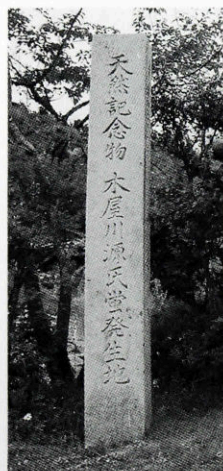 天然記念物 木屋川源氏蛍発生地